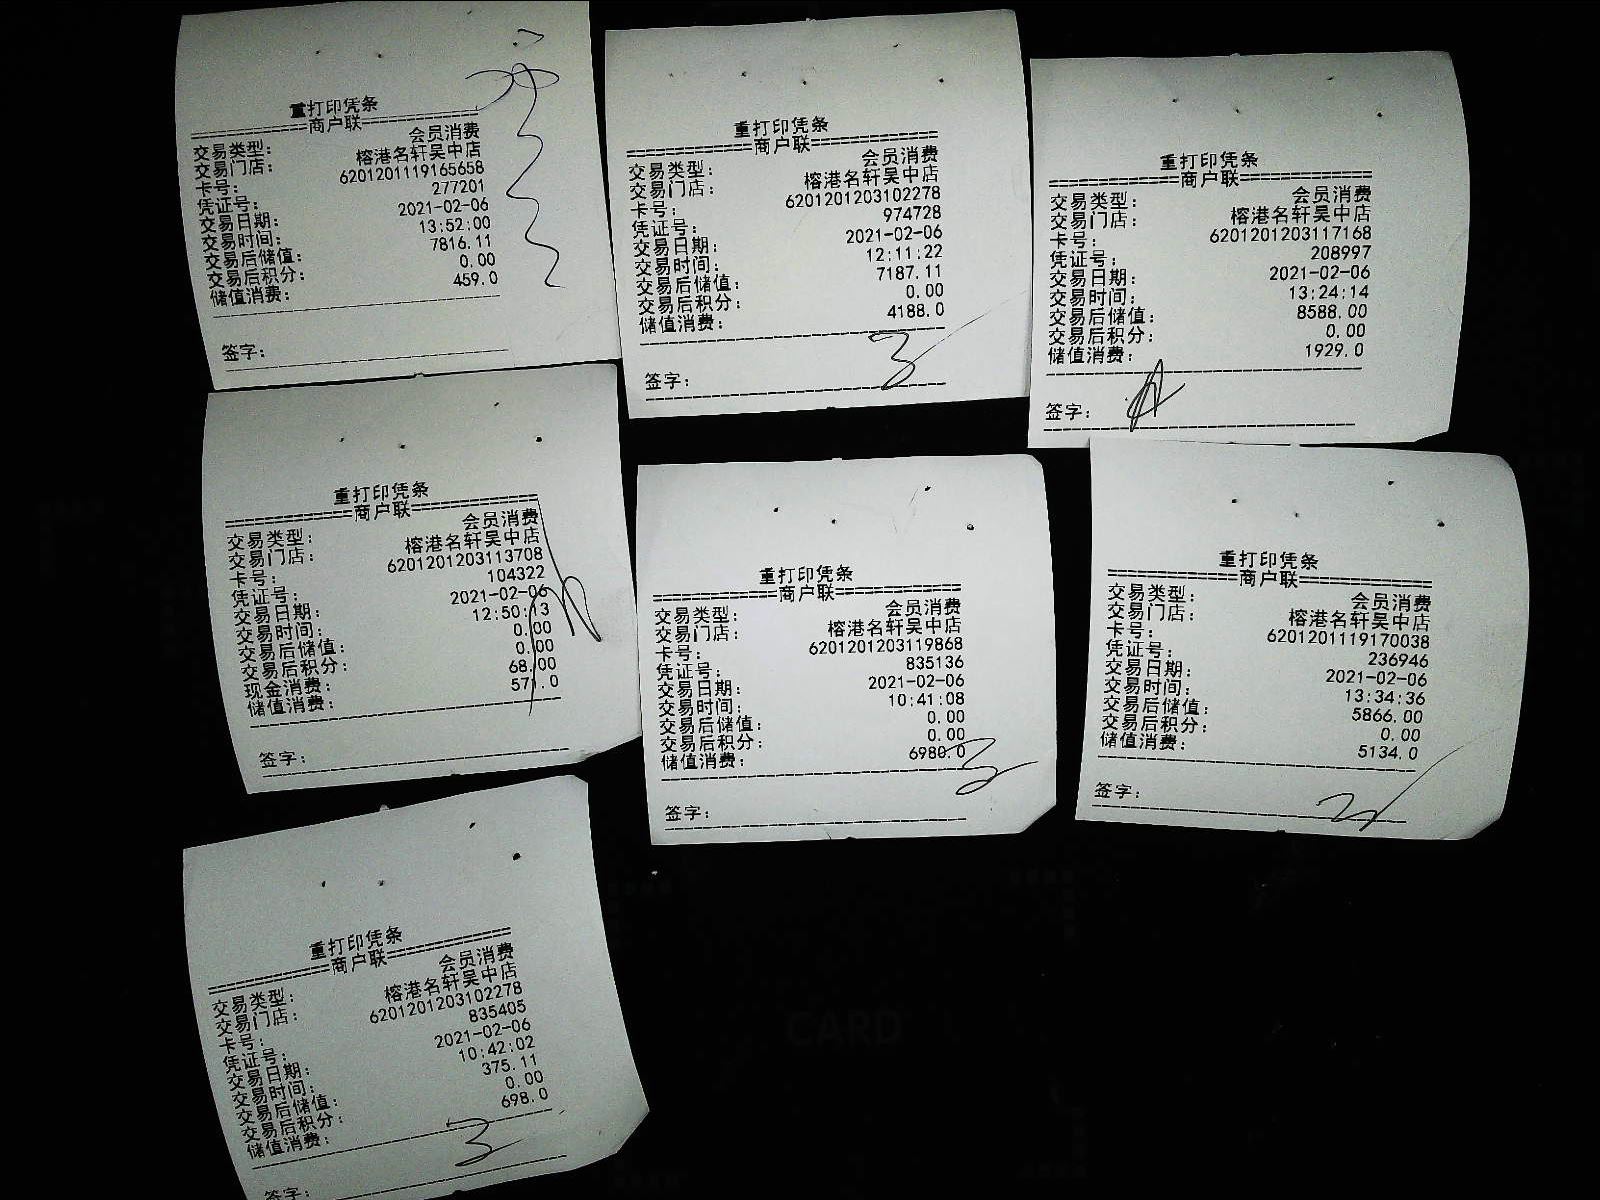 重打印凭条
商户联
交易类型： 会员消费
交易门店： 榕港名轩吴中店
卡号： 6201201119165658
凭证号： 277201
交易日期： 2021-02-06
交易时间： 13:52:00
交易后储值： 7816.11
交易后积分： 0.00
储值消费： 459.0
签字：
重打印凭条
商户联
交易类型： 会员消费
交易门店： 榕港名轩吴中店
卡号： 6201201203102278
凭证号： 974728
交易日期： 2021-02-06
交易时间： 12:11:22
交易后储值： 7187.11
交易后积分： 0.00
储值消费： 4188.0
签字：
重打印凭条
商户联
交易类型： 会员消费
交易门店： 榕港名轩吴中店
卡号： 6201201203117168
凭证号： 208997
交易日期： 2021-02-06
交易时间： 13:24:14
交易后储值： 8588.00
交易后积分： 0.00
储值消费： 1929.0
签字：
重打印凭条
商户联
交易类型： 会员消费
交易门店： 榕港名轩吴中店
卡号： 6201201203113708
凭证号： 104322
交易日期： 2021-02-06
交易时间： 12:50:13
交易后储值： 0.00
交易后积分： 0.00
现金消费： 68.00
储值消费： 571.0
签字：
重打印凭条
商户联
交易类型： 会员消费
交易门店： 榕港名轩吴中店
卡号： 6201201203119868
凭证号： 835136
交易日期： 2021-02-06
交易时间： 10:41:08
交易后储值： 0.00
交易后积分： 0.00
储值消费： 6980.0
签字：
重打印凭条
商户联
交易类型： 会员消费
交易门店： 榕港名轩吴中店
卡号： 6201201119170038
凭证号： 236946
交易日期： 2021-02-06
交易时间： 13:34:36
交易后储值： 5866.00
交易后积分： 0.00
储值消费： 5134.0
签字：
重打印凭条
商户联
交易类型： 会员消费
交易门店： 榕港名轩吴中店
卡号： 6201201203102278
凭证号： 835405
交易日期： 2021-02-06
交易时间： 10:42:02
交易后储值： 375.11
交易后积分： 0.00
储值消费： 698.0
签字：
CARD